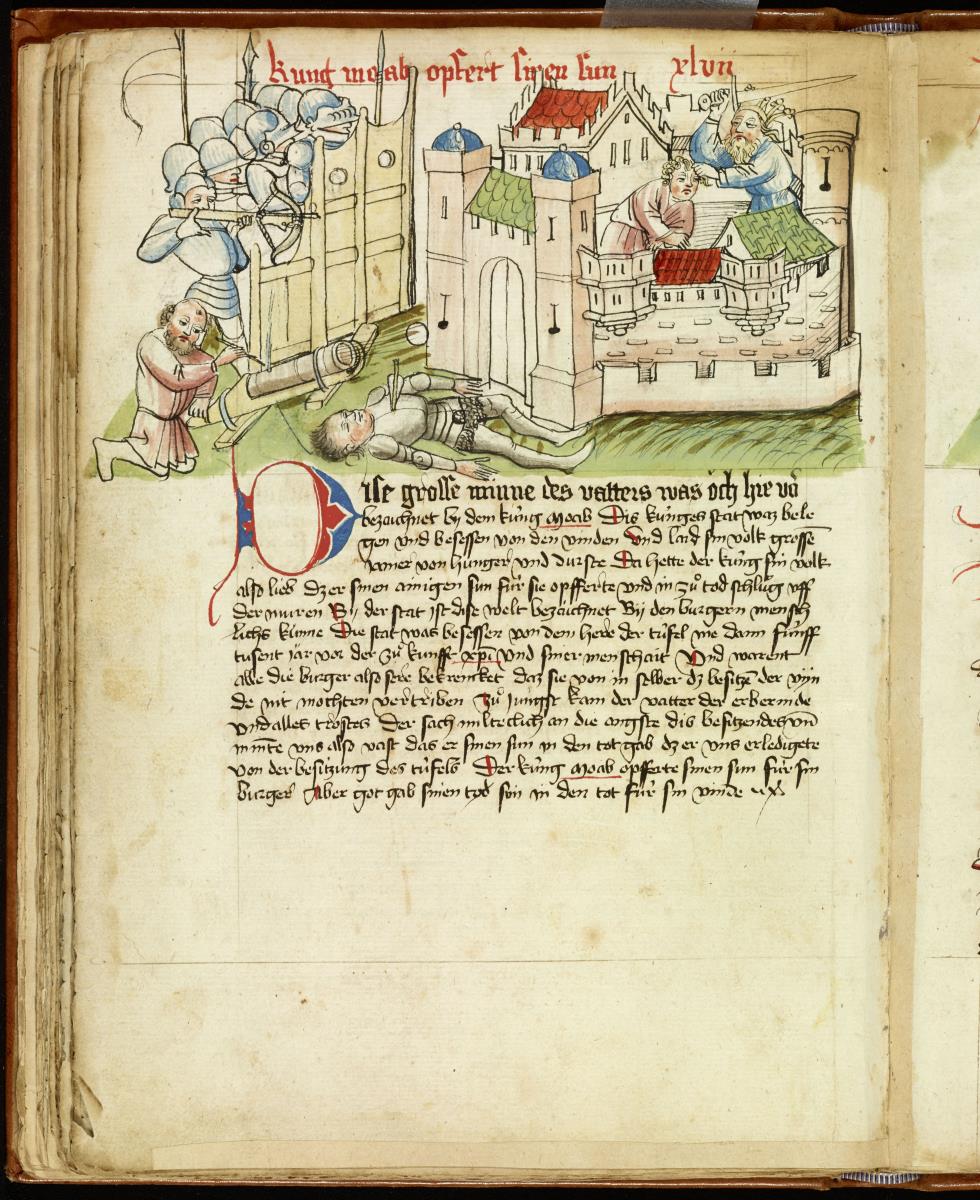 kung moab opfert sinen sun xlvii
Dise grosse minne des vatters was öch hie vō
bezaichnet bij dem küng moab Dis künges stat waz bele
gen vnd besessen von den vinden Vnd laid sin volk grossē
jamer von hunger vnd durste Da hette der küng sin volk
also lieb dz er sinen ainigen sun für sie opfferte vnd in zů tod schlůg vff
der muren Bij der stat ist dise welt bezaichnet Bij den burgern mensch
lichs künne Die stat was besessen von dem here der tüfel me dann fünff
tusent jär vor der zů kunfft xpi Vnd siner menschait Vnd warent
alle die burger also sere bekrencket daz sie von in selber dz besitzē der vyn
de nit mochten vertriben Zů jungst kam der vatter der erbermde
vnd alles trostes Der sach milteclich an die angste dis besitzendes vn̄
minte vns also vast das er sinen sun in den tot gab dz er vns erledigete
von der besitzung des tüfels Der küng moab opfferte sinen sun für sin
burger Aber got gab sinen sön in den tot für sin vinde